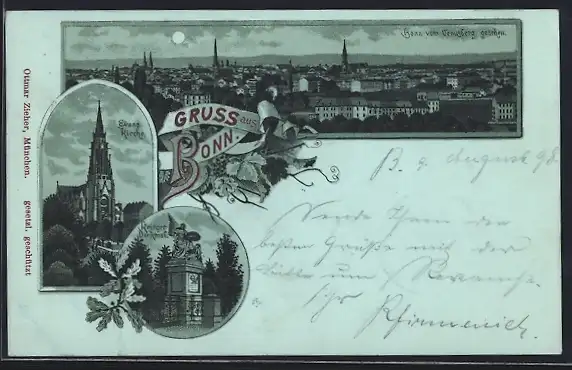 Bonn vom Kreuzberg gesehen.
GRUSS aus
BONN.
Evang.
Kirche
Krieger-
Denkmal
Ottmar Zieher, München. gesetzl. geschützt
B. 9 August 98.
Sende Ihnen den
besten Grüße mit der
Bitte um Revanche.
Ihr